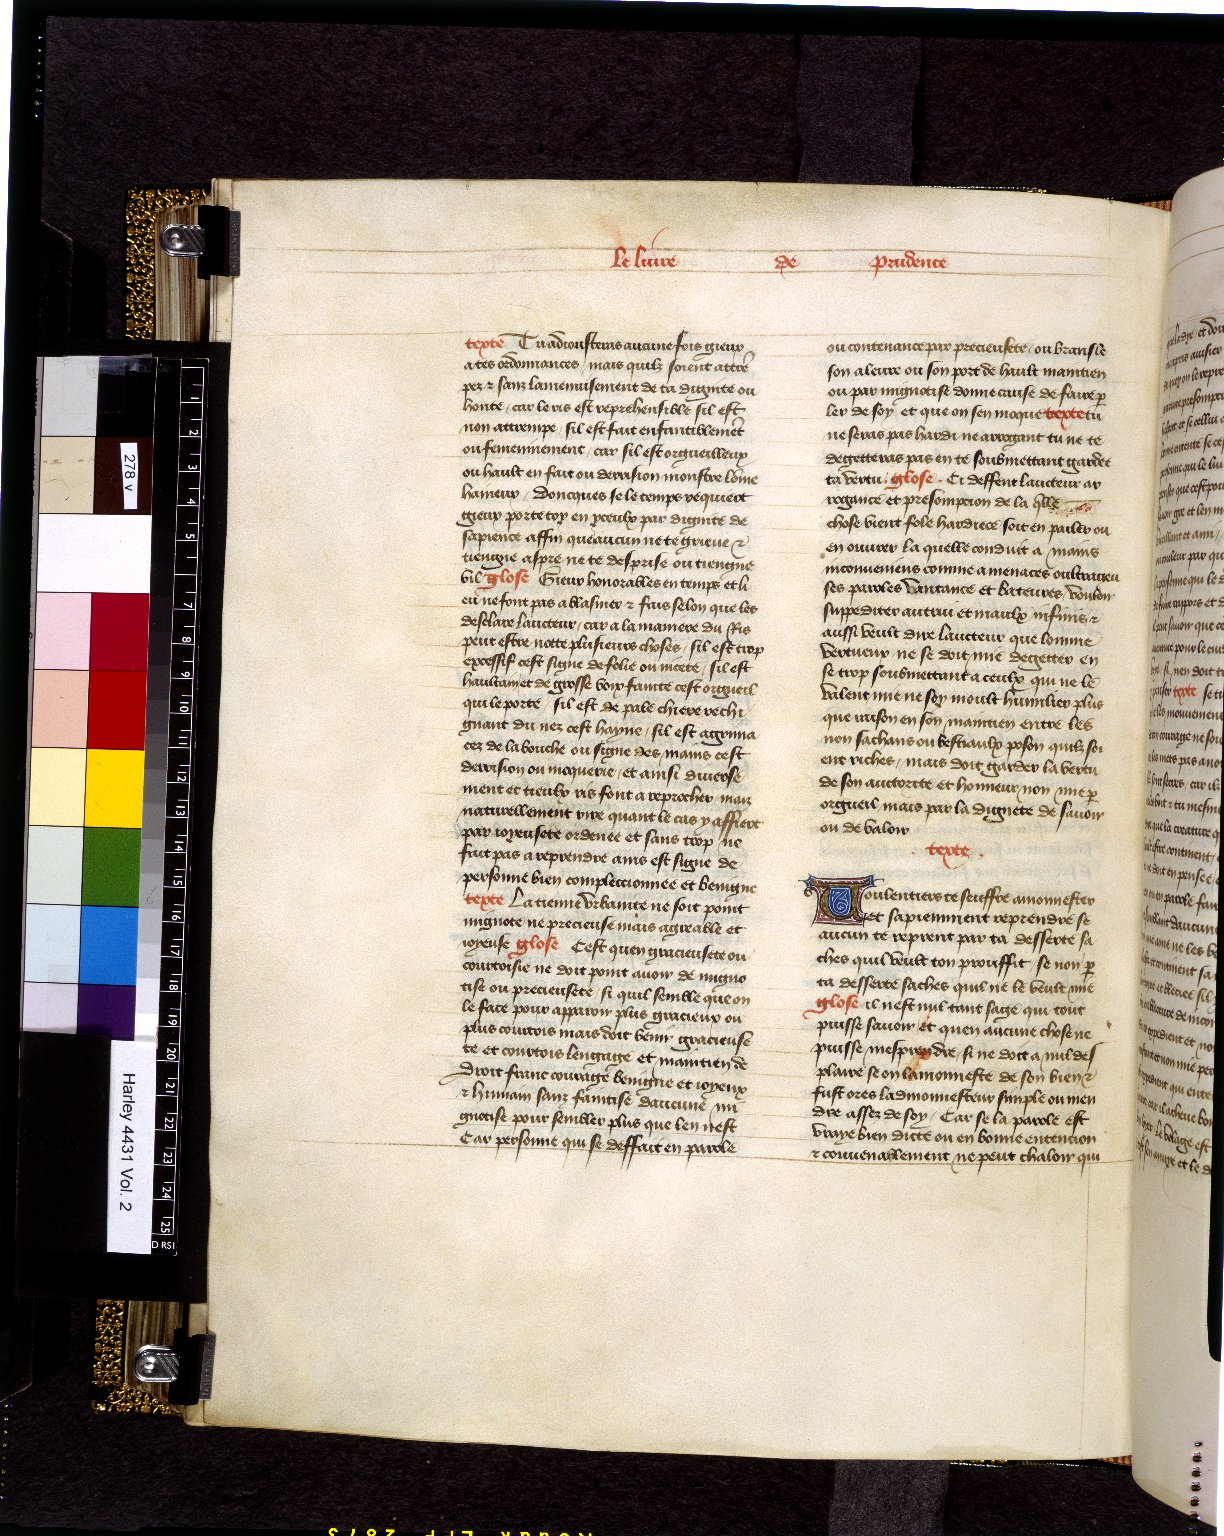 le liure de prudence
texte Tu adiousteras aucune fois gieux
a tes ordonnances / mais quilz soient attre
pez & sanz lamenuisement de ta dignite ou
honte / car le ris est reprehensible sil est
non attrempe / sil est fait enfantiblemet
ou femeninement / car sil est orgueilleux
ou hault en fait ou derrision monstre lome
haineux / Doncques se le temps requiert
gieux porte toy en yceulx par dignite de
sapience affin que aucun ne te grieue &
tiengne aspre ne te desprise ou tiengne
vil glose Gieux honorables en temps et li
eu ne font pas a blasmer & fais selon que les
desclaire laucteur / car a la maniere du Ris
peut estre notte plusieurs choses / sil est trop
excessif cest signe de folie ou nicete / sil est
haultain et de grosse voix fainte cest orgueil
qui le porte / sil est de pale chiere rechi
gnant du nez cest hayne / sil est agrima
cez de la bouche ou signe des mains cest
derrision ou moquerie / et ainsi diuerse
ment et tieulx ris font a reprocher mais
naturellement rire quant le cas y affiert
par ioyeusete ordenee et sans trop ne
fait pas a reprendre ains est signe de
personne bien complectionnee et benigne
texte La tienne vrbanite ne soit point
mignote ne precieuse mais agreable et
ioyeuse glose Cest quen gracieusete ou
courtoisie ne doit point auoir de migno
tise ou precieusete / si quil semble que on
le face pour apparoir plus gracieux ou
plus courtois mais doit venir gracieuse
te et courtois lengage et maintien de
droit franc courage benigne et ioyeux
& humain sanz faintise daucune mi
gnotise pour sembler plus que len nest
Car personne qui se deffait en parole
ou contenance par precieusete / ou bransle
son aleure ou son port de hault maintien
ou par mignotise donne cause de faire p
ler de soy et que on sen moque texte tu
ne seras pas hardi ne arrogant tu ne te
degetteras pas en te soubmettant garder
ta vertu / glose . Ci deffent laucteur ar
rogance et presompcion de la qlle
chose vient fole hardiece soit en parler ou
en ouurer la quelle conduit a mains
inconueniens comme a menaces oultrageu
ses paroles vantance et bateures / vouloir
suppediter autrui et maulx infinis &
aussi veult dire laucteur que lomme
vertueux ne se doit mie degetter en
se trop soubmettant a ceulx qui ne le
valent mie ne soy moult humilier plus
que raison en son maintien entre les
non sachans ou bestiaulx poson quilz soi
ent riches / mais doit garder la vertu
de son auctorite et honneur non mie p
orgueil mais par la dignete de sauoir
ou de valoir
texte .
Voulentiers te seuffre amonnester
et sapiemment reprendre se
aucun te reprent par ta desserte sa
ches quil veult ton prouffit se non p
ta desserte saches quil ne le veult mie
glose il nest nul tant sage qui tout
puisse sauoir et quen aucune chose ne
puisse mesprendre / si ne doit a nul des
plaire se on lamonneste de son bien &
fust ores ladmonnesteur simple ou men
dre assez de soy / Car se la parole est
vraye bien dicte ou en bonne entencion
& couuenablement ne peut chaloir qui
278 v
Harley 4431 Vol. 2
1
2
3
4
5
7
8
9
10
11
12
13
14
15
16
17
18
19
20
21
22
23
24
25